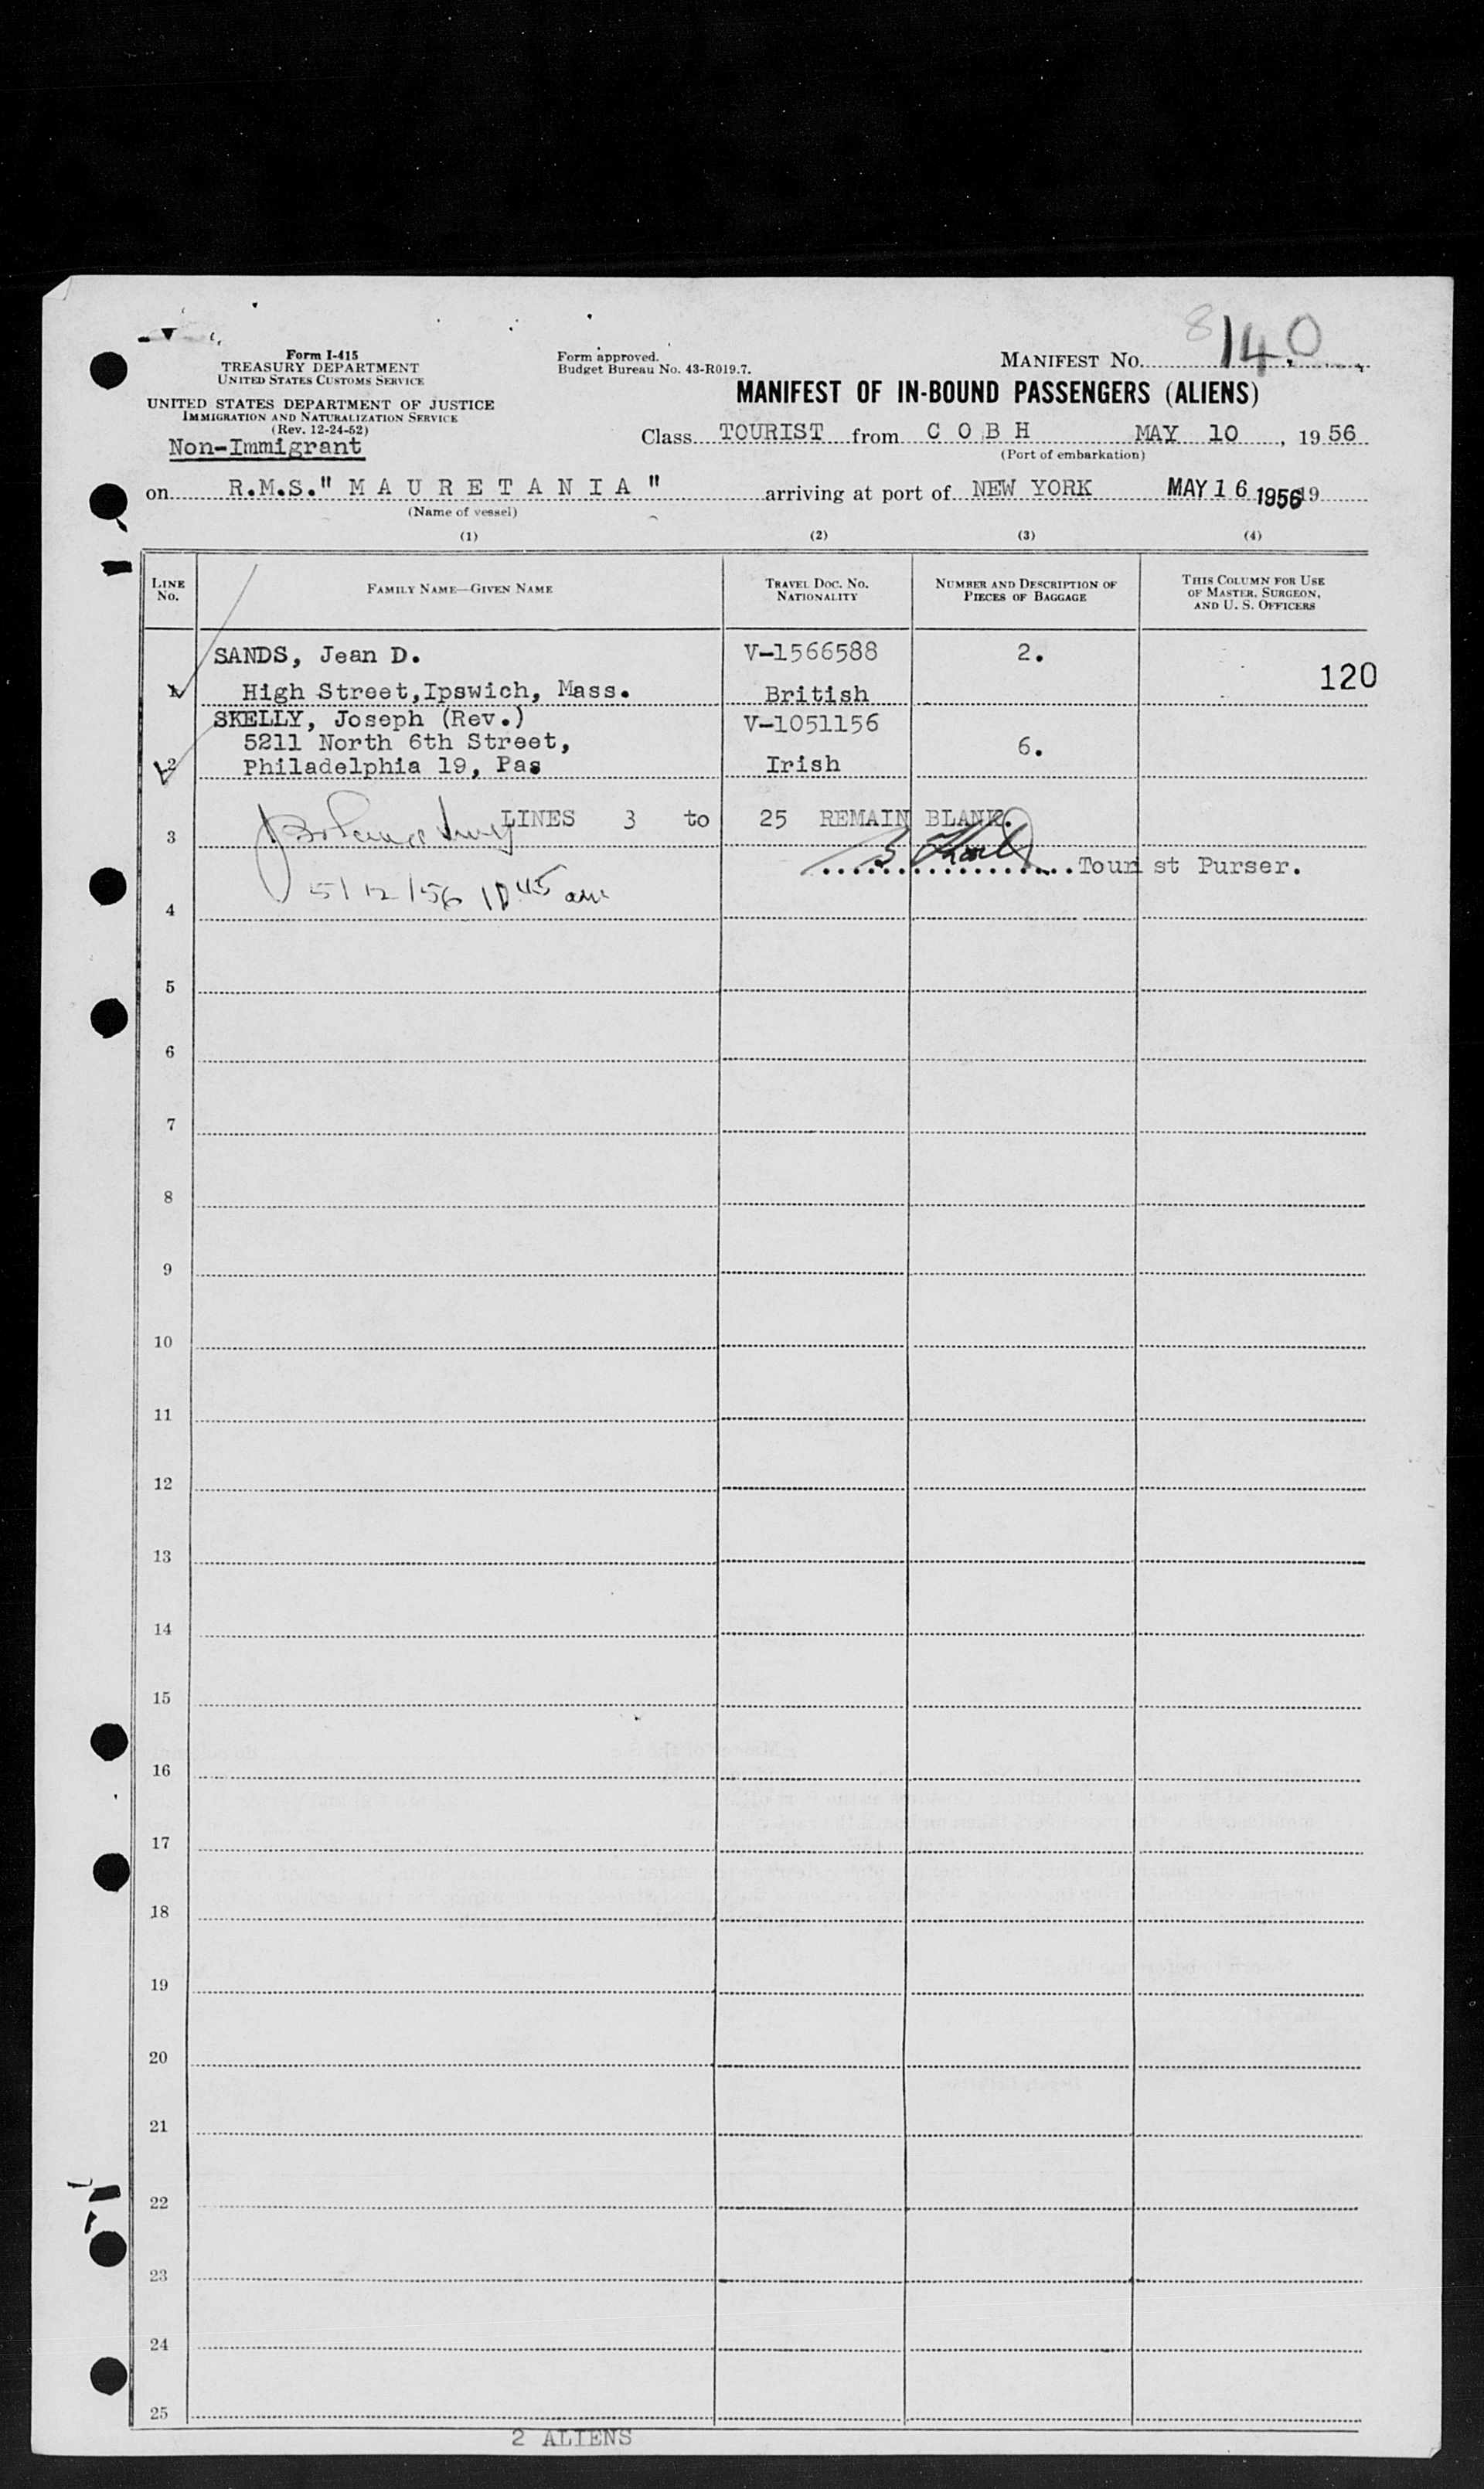 8140
Form I-415
TREASURY DEPARTMENT
UNITED STATES CUSTOMS SERVICE
Form approved.
Budget Bureau No. 43-R019.7.
MANIFEST No.
MANIFEST OF IN-BOUND PASSENGERS (ALIENS)
UNITED STATES DEPARTMENT OF JUSTICE
IMMIGRATION AND NATURALIZATION SERVICE
(Rev. 12-24-52)
Non-Immigrant
Class TOURIST from C O B H MAY 10, 1956
(Port of embarkation)
on R.M.S." M A U R E T A N I A " arriving at port of NEW YORK MAY 16 1956 19
(Name of vessel)
(1) (2) (3) (4)
LINE No. FAMILY NAME—GIVEN NAME TRAVEL DOC. No. NATIONALITY NUMBER AND DESCRIPTION OF PIECES OF BAGGAGE THIS COLUMN FOR USE OF MASTER, SURGEON, AND U. S. OFFICERS
SANDS, Jean D. V-1566588 2.
120
1 High Street,Ipswich, Mass. British
SKELLY, Joseph (Rev.) V-1051156
5211 North 6th Street, 6.
2 Philadelphia 19, Pas Irish
LINES 3 to 25 REMAIN BLANK.
3
Tourist Purser.
5/12/56 10 45 am
4
5
6
7
8
9
10
11
12
13
14
15
16
17
18
19
20
21
22
23
24
25
2 ALIENS